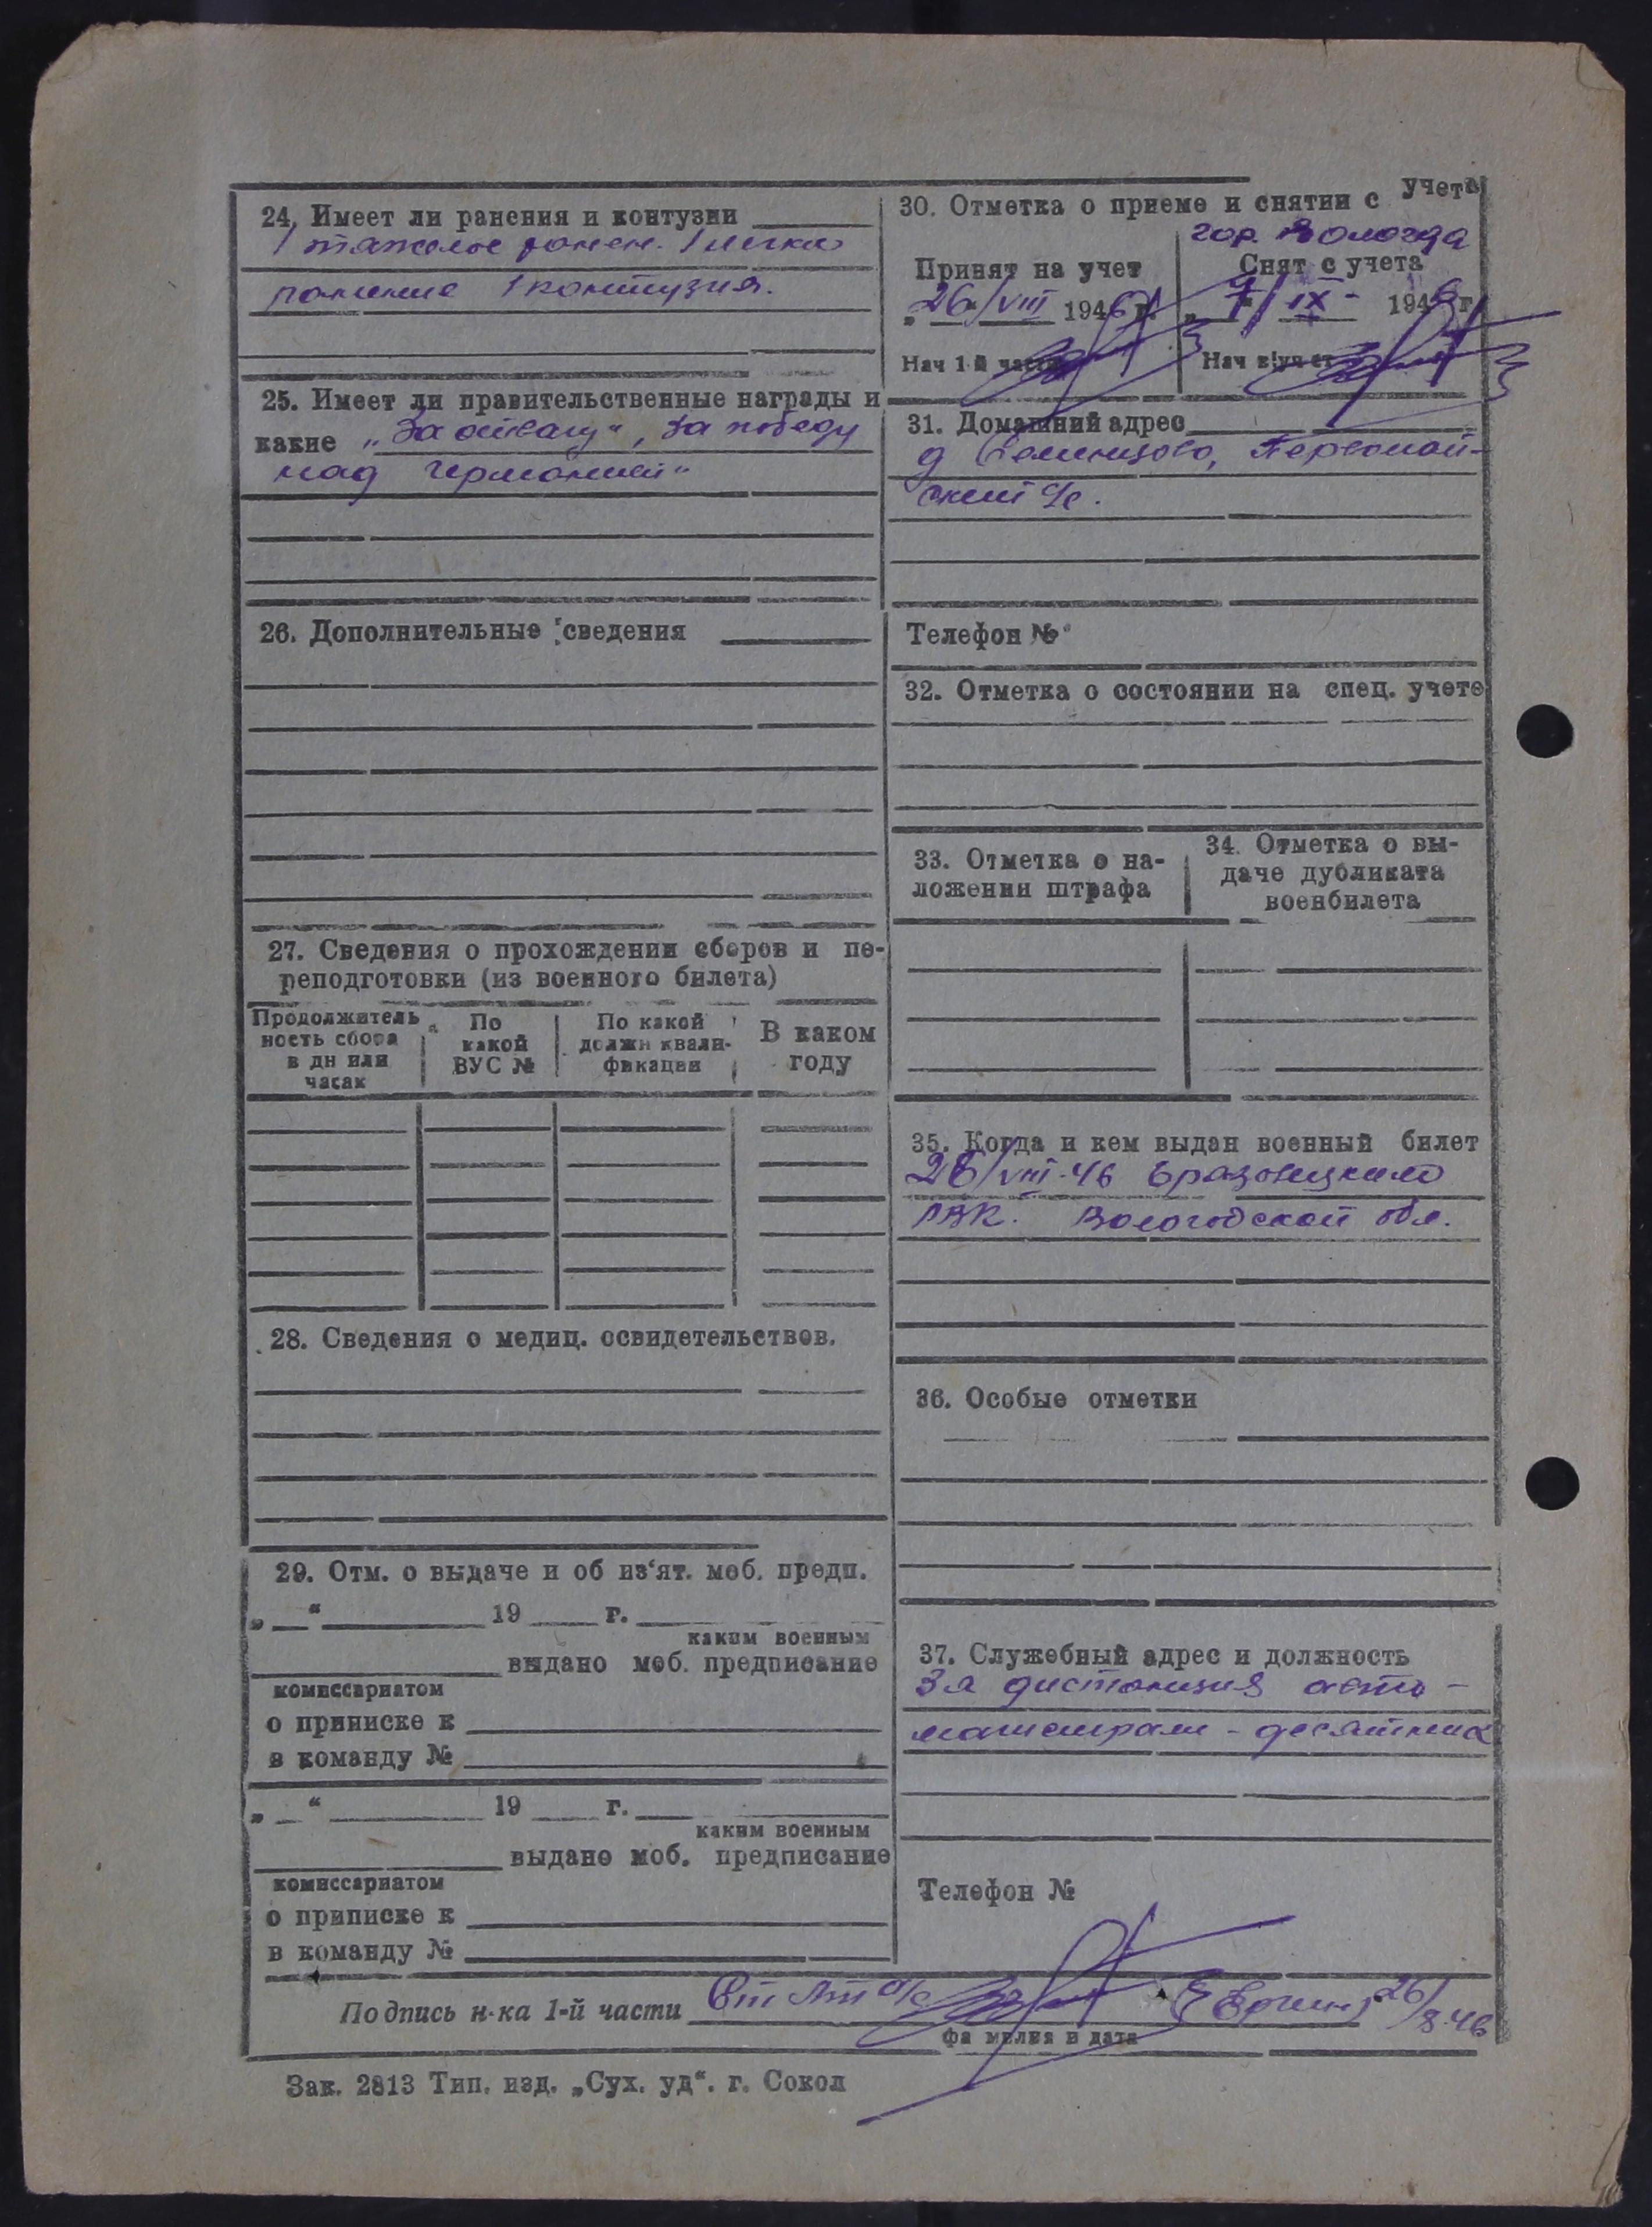 24. Имеет ли ранения и контузии
1 тяжелое ранен. 1 легкое
ранение 1 контузия.
25. Имеет ли правительственные награды и
какие „За отвагу“, За победу
над Германией“
26. Дополнительные сведения
27. Сведения о прохождении сборов и пе-
реподготовки (из военного билета)
Продолжитель
ность сбора
в дн или
часах
По
какой
ВУС №
По какой
должн квали-
фикации
В каком
году
28. Сведения о медиц. освидетельствов.
29. Отм. о выдаче и об из‘ят. моб. предп.
„ “ 19 г.
каким военным
выдано моб. предписание
комиссариатом
о приписке к
в команду №
„ “ 19 г.
каким военным
выдано моб. предписание
комиссариатом
о приписке к
в команду №
30. Отметка о приеме и снятии с учета
гор. Вологда
Принят на учет
„26/VIII 1946 г.
Нач 1-й части
Снят с учета
„7/IX- 1946 г
Нач
31. Домашний адрес
д Семенцово, Первомай-
ский с/с.
Телефон №
32. Отметка о состоянии на спец. учете
33. Отметка о на-
ложении штрафа
34. Отметка о вы-
даче дубликата
военбилета
35. Когда и кем выдан военный билет
26/VIII-46
РВК. Вологодской обл.
36. Особые отметки
37. Служебный адрес и должность
3я дистанция авто-
магистрали - десятник
Телефон №
Подпись н-ка 1-й части Ст Лт а/с 26/8.46
фамилия и дата
Зак. 2813 Тип. изд. „Сух. уд“. г. Сокол